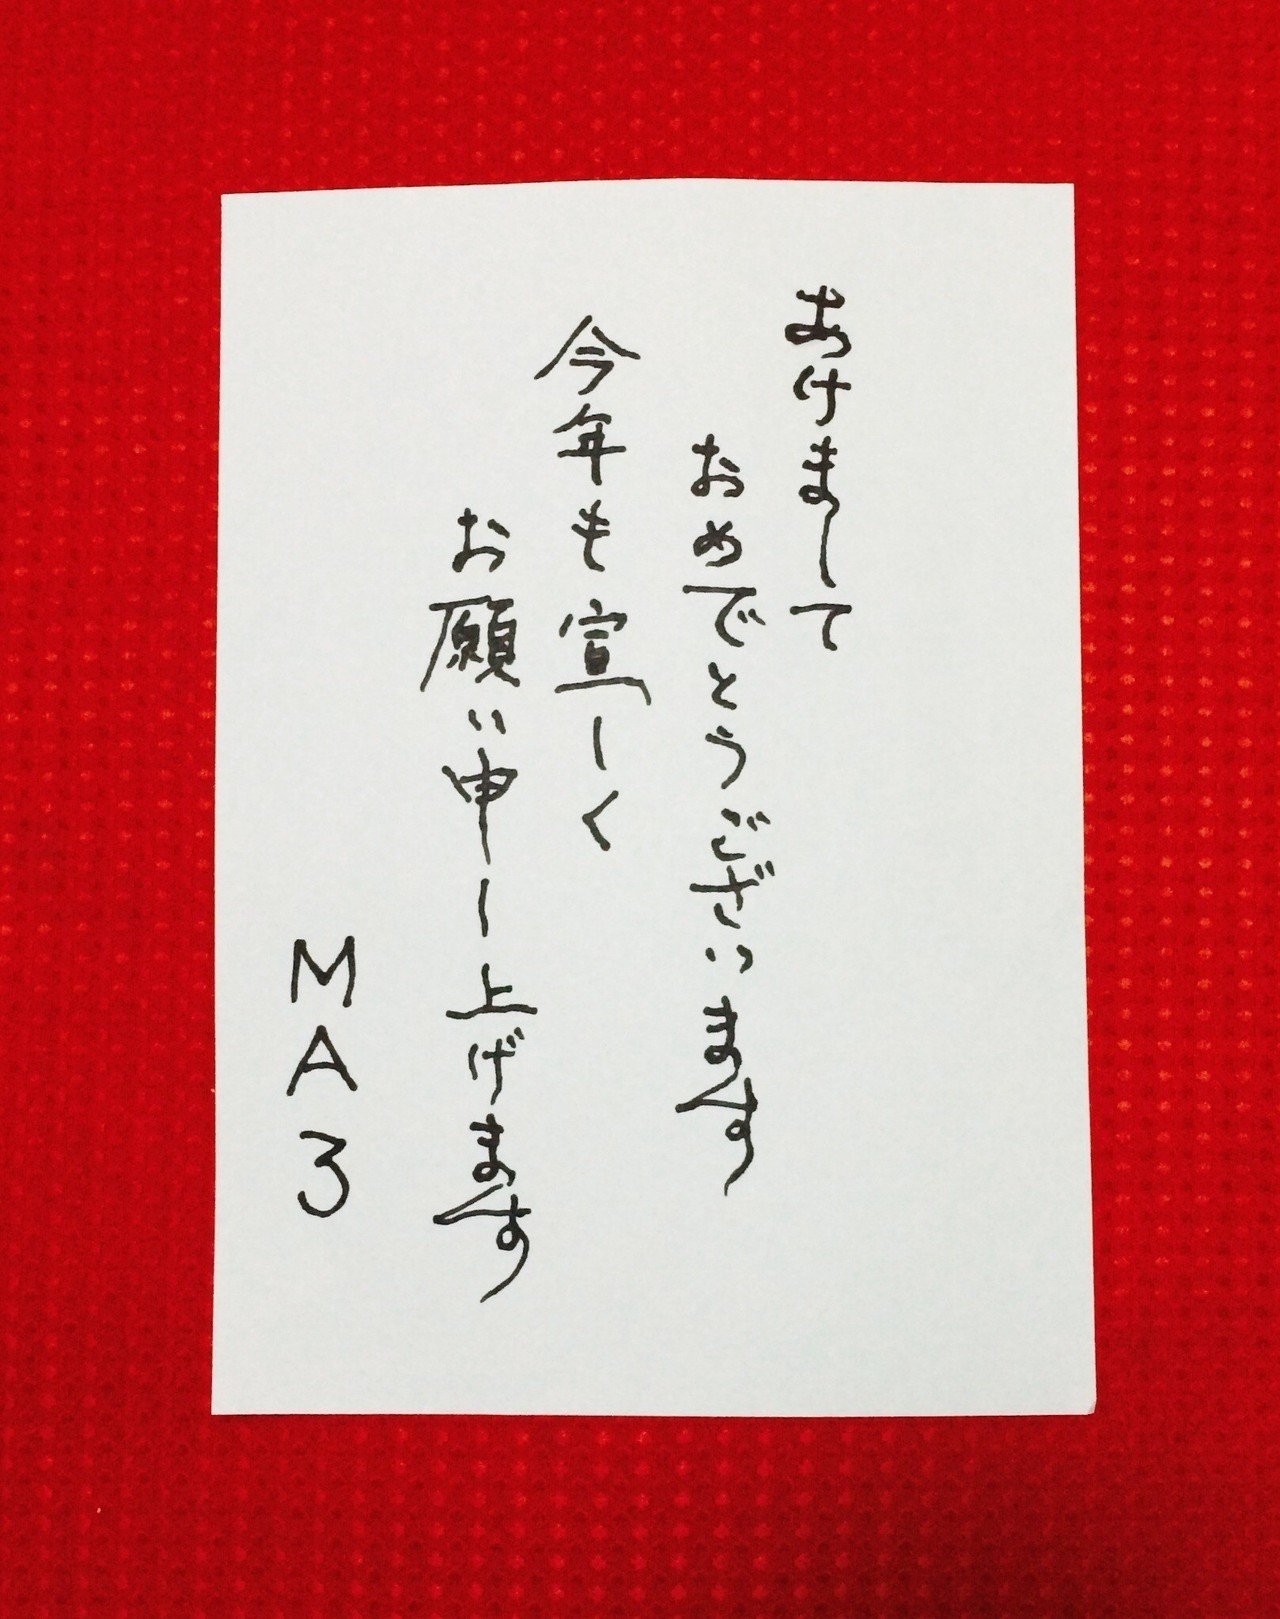 あけまして
おめでとうございます
今年も宣しく
お願い申し上げます
MA3